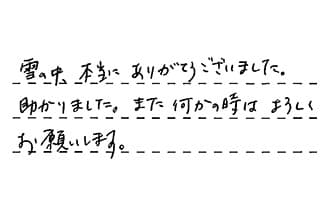 雪の中、本当にありがとうございました。
助かりました。また何かの時はよろしく
お願いします。